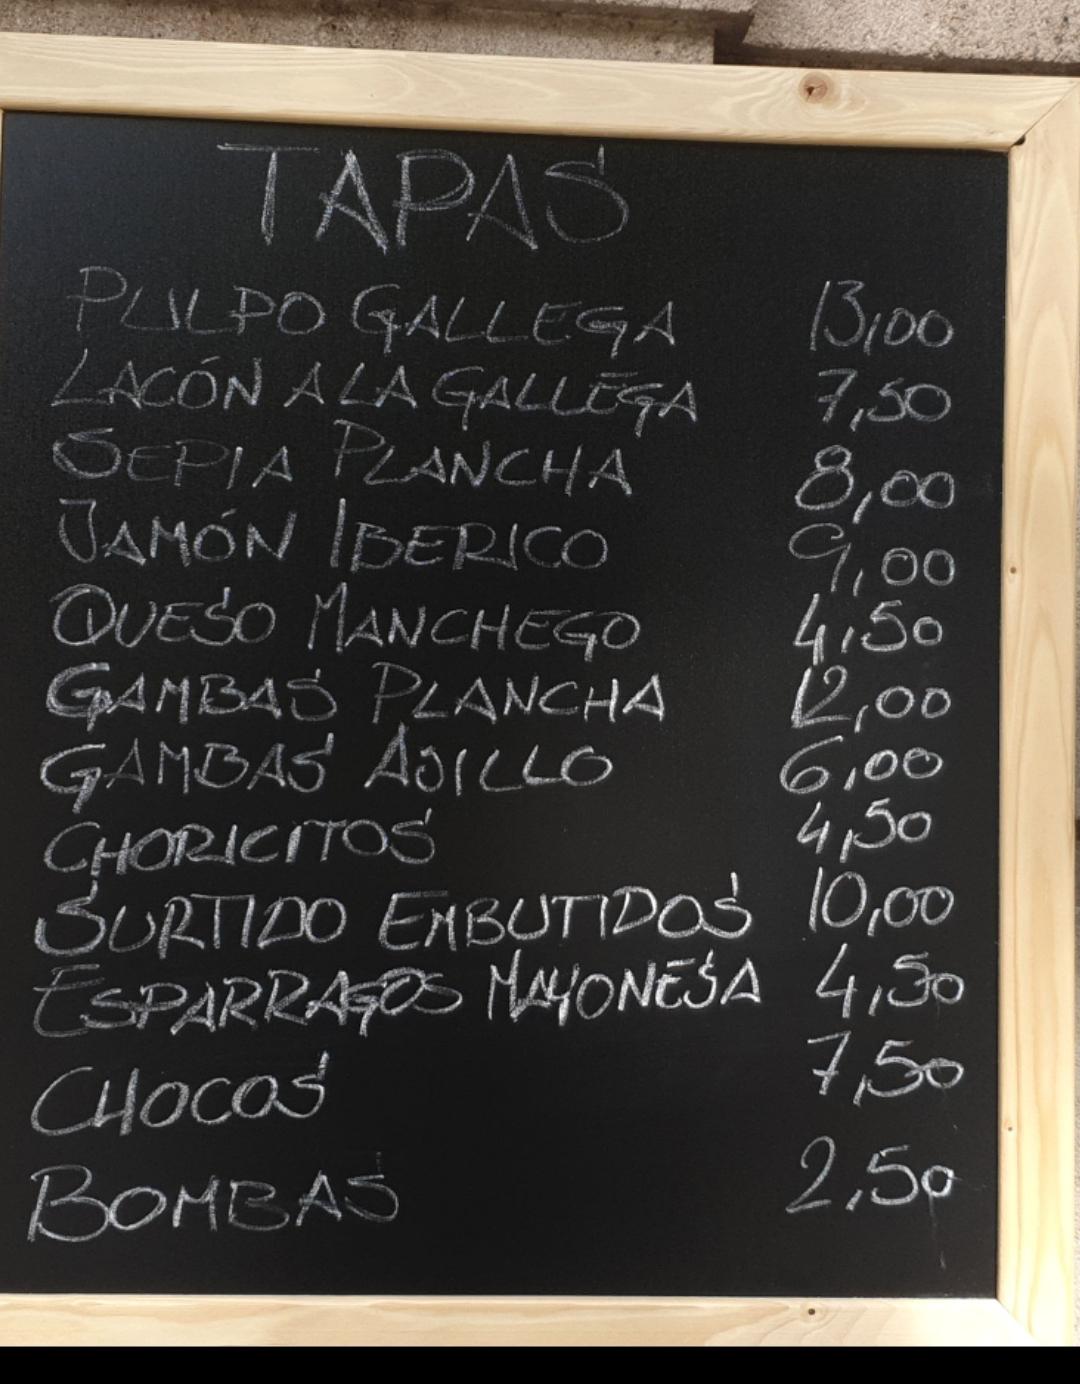 TAPAS
PULPO GALLEGA 13,00
LACÓN A LA GALLEGA 7,50
SEPIA PLANCHA 8,00
JAMÓN IBERICO 9,00
QUESO MANCHEGO 4,50
GAMBAS PLANCHA 12,00
GAMBAS AJILLO 6,00
CHORICITOS 4,50
SURTIDO EMBUTIDOS 10,00
ESPARRAGOS MAYONESA 4,50
CHOCOS 7,50
BOMBAS 2,50